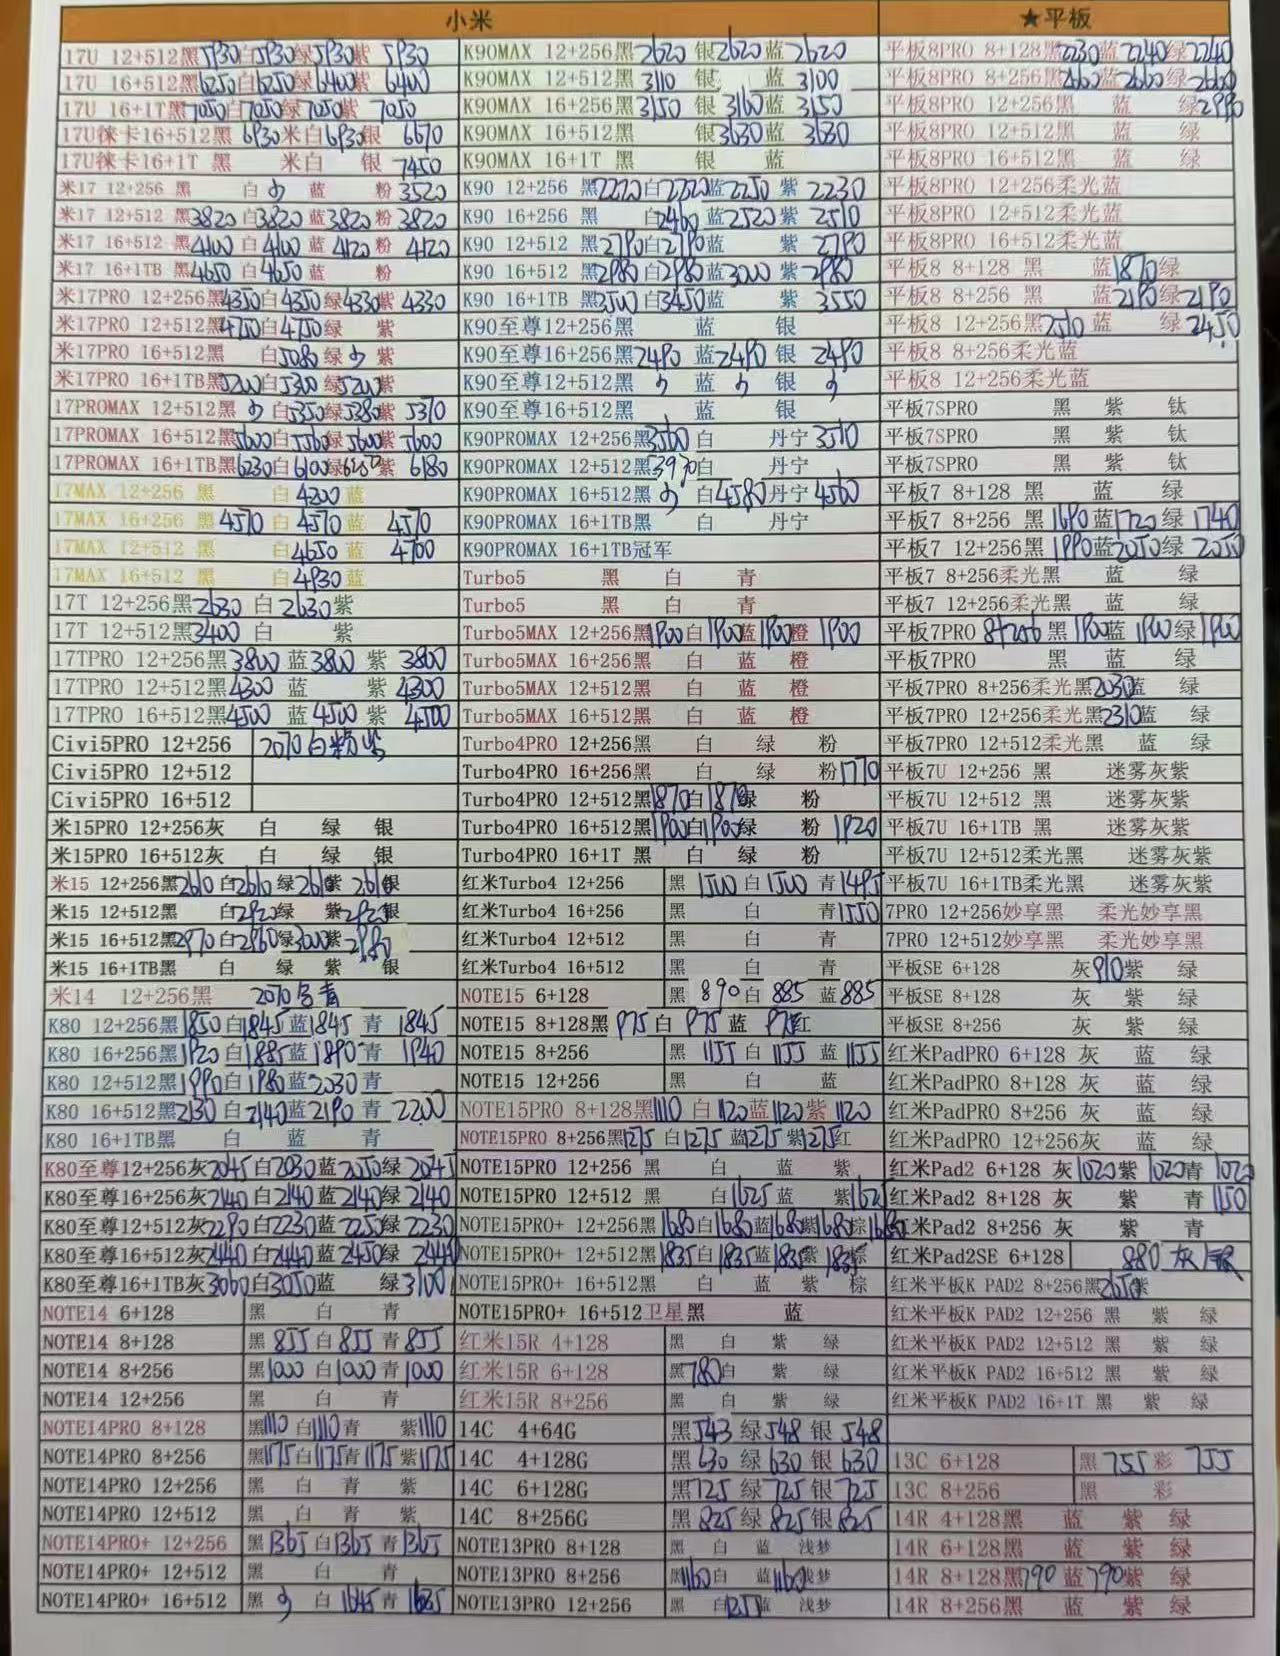 小米
★平板
17U 12+512黑5930白5930绿5930紫 5930
17U 16+512黑6250白6250绿6400紫 6400
17U 16+1T黑7050白7050绿7050紫 7050
17U徕卡16+512黑 6930 米白6930银 6670
17U徕卡16+1T 黑 米白 银 7450
米17 12+256 黑 白 蓝 粉3520
米17 12+512 黑3820白3820蓝3820粉 3820
米17 16+512 黑4100 白4100 蓝4120粉 4120
米17 16+1TB黑4650 白4650 蓝 粉
米17PRO 12+256黑4350白4350绿4330紫 4330
米17PRO 12+512黑4750白4750绿 紫
米17PRO 16+512黑 白5080绿 紫
米17PRO 16+1TB黑5200白5300绿5200紫
17PROMAX 12+512黑 白5350绿5380紫 5370
17PROMAX 16+512黑5600白5560绿5600紫5600
17PROMAX 16+1TB黑6230白6100绿 紫 6180
17MAX 12+256 黑 白4200蓝
17MAX 16+256 黑4570 白4570 蓝 4570
17MAX 12+512 黑 白4650 蓝 4700
17MAX 16+512 黑 白4930蓝
17T 12+256黑2630 白2630紫
17T 12+512黑3400 白 紫
17TPRO 12+256黑3800 蓝3800 紫 3800
17TPRO 12+512黑4300 蓝 紫4300
17TPRO 16+512黑4500 蓝4500 紫 4500
Civi5PRO 12+256 2070白粉紫
Civi5PRO 12+512
Civi5PRO 16+512
米15PRO 12+256灰 白 绿 银
米15PRO 16+512灰 白 绿 银
米15 12+256黑2610白2610绿2610紫 2610银
米15 12+512黑 白2920绿 紫2920银
米15 16+512黑2970白2960绿3000紫2980
米15 16+1TB黑 白 绿 紫 银
米14 12+256黑 2070 青
K80 12+256黑1850白1845蓝1845 青 1845
K80 16+256黑1920白1885蓝1890青 1940
K80 12+512黑1990白1980蓝2030青
K80 16+512黑2130 白2140蓝2190 青 2200
K80 16+1TB黑 白 蓝 青
K80至尊12+256灰2045白2030蓝2050绿 2045
K80至尊16+256灰2140白2140蓝2140绿 2140
K80至尊12+512灰2290白2230蓝2250绿 2230
K80至尊16+512灰2440白2440蓝2450绿 2440
K80至尊16+1TB灰3060白3050蓝 绿3100
NOTE14 6+128 黑 白 青
NOTE14 8+128 黑 855白855青855
NOTE14 8+256 黑1000 白1000青1000
NOTE14 12+256 黑 白 青
NOTE14PRO 8+128 黑1110 白1110青 紫1110
NOTE14PRO 8+256 黑1175白1175青1175紫1175
NOTE14PRO 12+256 黑 白 青 紫
NOTE14PRO 12+512 黑 白 青 紫
NOTE14PRO+ 12+256 黑1365白1365青1365
NOTE14PRO+ 12+512 黑 白 青
NOTE14PRO+ 16+512 黑 白1645青1635
K90MAX 12+256黑2620 银2620蓝 2620
K90MAX 12+512黑 3110 银 蓝 3100
K90MAX 16+256黑3150 银 3160蓝 3150
K90MAX 16+512黑 银3630蓝 3630
K90MAX 16+1T 黑 银 蓝
K90 12+256 黑2220白2220蓝2250 紫 2230
K90 16+256 黑 白2460蓝2520紫 2510
K90 12+512 黑2790白2790蓝 紫 2790
K90 16+512 黑2980白2980蓝3000紫 2980
K90 16+1TB 黑3500白3450蓝 紫 3550
K90至尊12+256黑 蓝 银
K90至尊16+256黑2490 蓝2490 银 2490
K90至尊12+512黑 蓝 银
K90至尊16+512黑 蓝 银
K90PROMAX 12+256黑3560白 丹宁3510
K90PROMAX 12+512黑3970白 丹宁
K90PROMAX 16+512黑 白4580丹宁4560
K90PROMAX 16+1TB黑 白 丹宁
K90PROMAX 16+1TB冠军
Turbo5 黑 白 青
Turbo5 黑 白 青
Turbo5MAX 12+256黑1900白1900蓝1900橙 1900
Turbo5MAX 16+256黑 白 蓝 橙
Turbo5MAX 12+512黑 白 蓝 橙
Turbo5MAX 16+512黑 白 蓝 橙
Turbo4PRO 12+256黑 白 绿 粉
Turbo4PRO 16+256黑 白 绿 粉1770
Turbo4PRO 12+512黑1870白1870绿 粉
Turbo4PRO 16+512黑1900白1900绿 粉 1920
Turbo4PRO 16+1T 黑 白 绿 粉
红米Turbo4 12+256 黑 1500白1500 青1495
红米Turbo4 16+256 黑 白 青1550
红米Turbo4 12+512 黑 白 青
红米Turbo4 16+512 黑 白 青
NOTE15 6+128 黑 890白 885 蓝885
NOTE15 8+128黑 975白 975 蓝 975红
NOTE15 8+256 黑 1155白 1155 蓝1155
NOTE15 12+256 黑 白 蓝
NOTE15PRO 8+128黑1110 白1120蓝1120紫 1120
NOTE15PRO 8+256黑1275 白1275 蓝1275紫1275红
NOTE15PRO 12+256 黑 白 蓝 紫
NOTE15PRO 12+512 黑 白1625蓝 紫1625
NOTE15PRO+ 12+256黑1680白1680蓝1680紫1680棕1680
NOTE15PRO+ 12+512黑1835白1835蓝1835紫1835棕
NOTE15PRO+ 16+512黑 白 蓝 紫 棕
NOTE15PRO+ 16+512卫星黑 蓝
红米15R 4+128 黑 白 紫 绿
红米15R 6+128 黑780白 紫 绿
红米15R 8+256 黑 白 紫 绿
14C 4+64G 黑543 绿548 银 548
14C 4+128G 黑630 绿630 银 630
14C 6+128G 黑725 绿725 银725
14C 8+256G 黑825 绿825 银825
NOTE13PRO 8+128 黑 白 蓝 浅梦
NOTE13PRO 8+256 黑1160白 蓝1160浅梦
NOTE13PRO 12+256 黑 白1255蓝 浅梦
平板8PRO 8+128黑2230蓝 2240绿2240
平板8PRO 8+256黑2660蓝2660绿2660
平板8PRO 12+256黑 蓝 绿2990
平板8PRO 12+512黑 蓝 绿
平板8PRO 16+512黑 蓝 绿
平板8PRO 12+256柔光蓝
平板8PRO 12+512柔光蓝
平板8PRO 16+512柔光蓝
平板8 8+128 黑 蓝1870绿
平板8 8+256 黑 蓝2190绿2190
平板8 12+256黑2510蓝 绿 2450
平板8 8+256柔光蓝
平板8 12+256柔光蓝
平板7SPRO 黑 紫 钛
平板7SPRO 黑 紫 钛
平板7SPRO 黑 紫 钛
平板7 8+128 黑 蓝 绿
平板7 8+256 黑1690蓝1720绿 1740
平板7 12+256黑1990蓝2050绿 2050
平板7 8+256柔光黑 蓝 绿
平板7 12+256柔光黑 蓝 绿
平板7PRO 8+256 黑1900蓝 1900绿1900
平板7PRO 黑 蓝 绿
平板7PRO 8+256柔光黑2030蓝 绿
平板7PRO 12+256柔光黑2310蓝 绿
平板7PRO 12+512柔光黑 蓝 绿
平板7U 12+256 黑 迷雾灰紫
平板7U 12+512 黑 迷雾灰紫
平板7U 16+1TB 黑 迷雾灰紫
平板7U 12+512柔光黑 迷雾灰紫
平板7U 16+1TB柔光黑 迷雾灰紫
7PRO 12+256妙享黑 柔光妙享黑
7PRO 12+512妙享黑 柔光妙享黑
平板SE 6+128 灰910紫 绿
平板SE 8+128 灰 紫 绿
平板SE 8+256 灰 紫 绿
红米PadPRO 6+128 灰 蓝 绿
红米PadPRO 8+128 灰 蓝 绿
红米PadPRO 8+256 灰 蓝 绿
红米PadPRO 12+256灰 蓝 绿
红米Pad2 6+128 灰1020紫 1020青 1020
红米Pad2 8+128 灰 紫 青1150
红米Pad2 8+256 灰 紫 青
红米Pad2SE 6+128 880 灰/银
红米平板K PAD2 8+256黑2650紫
红米平板K PAD2 12+256 黑 紫 绿
红米平板K PAD2 12+512 黑 紫 绿
红米平板K PAD2 16+512 黑 紫 绿
红米平板K PAD2 16+1T 黑 紫 绿
13C 6+128 黑 755 彩 755
13C 8+256 黑 彩
14R 4+128黑 蓝 紫 绿
14R 6+128黑 蓝 紫 绿
14R 8+128黑790蓝790紫 绿
14R 8+256黑 蓝 紫 绿